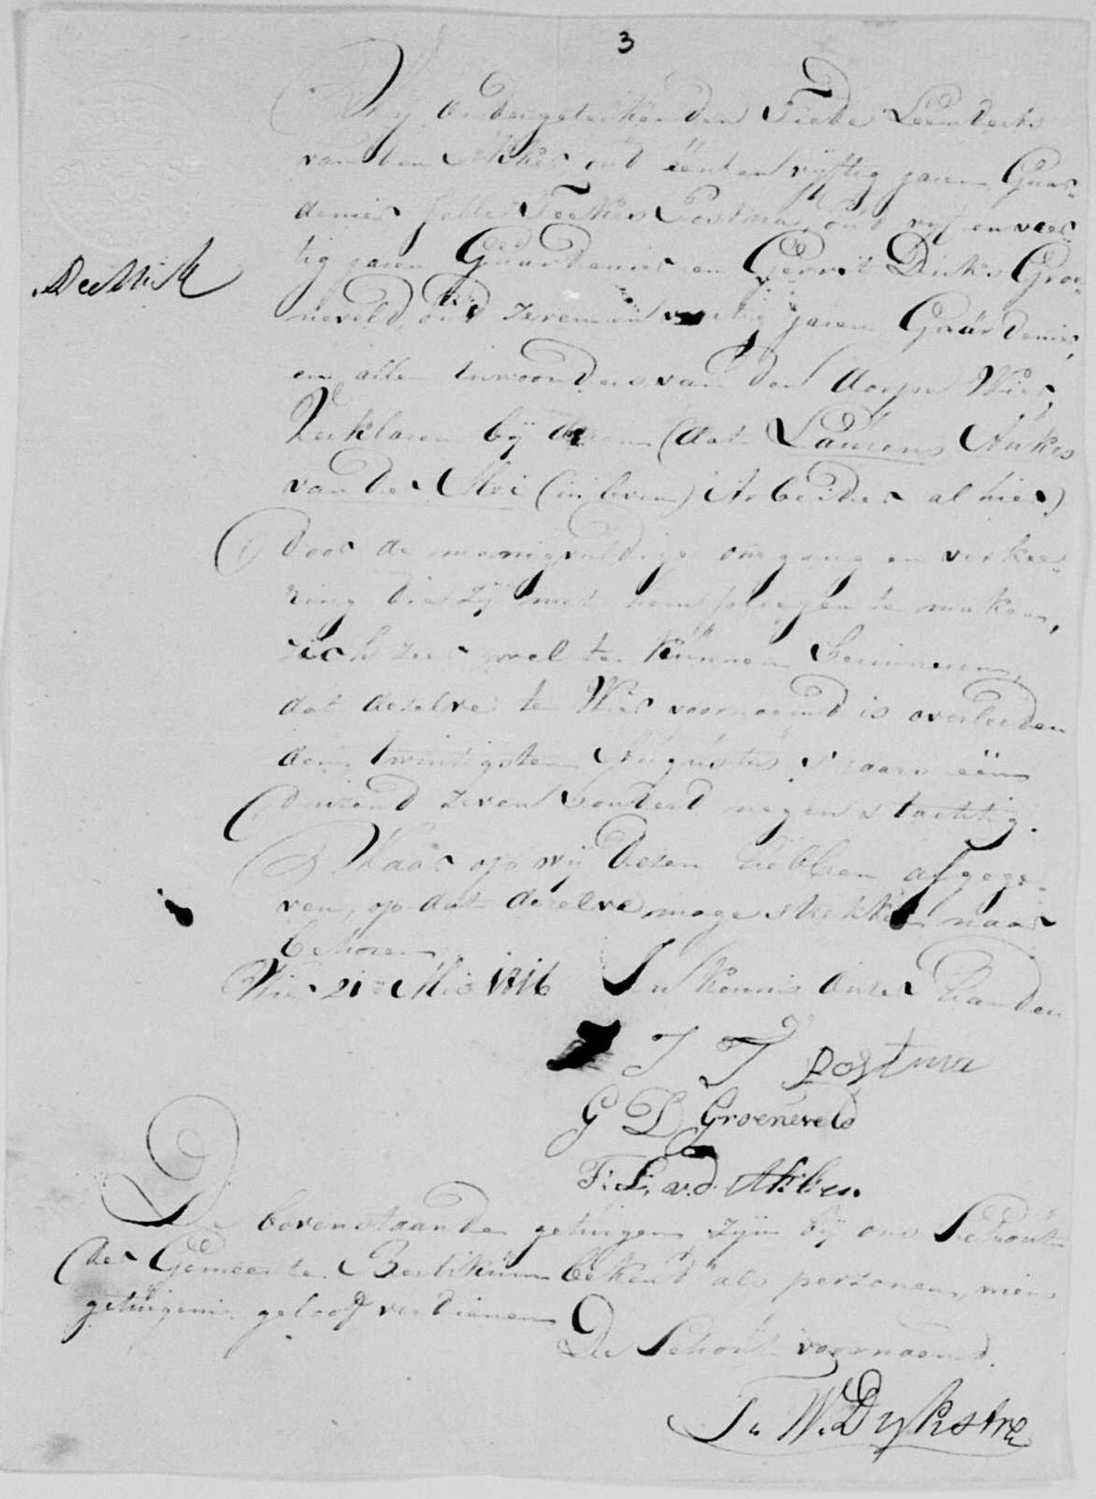 3
Wij ondergetekenden Tiede Leenderts
van den Akker oud één en vijftig jaren Gaar-
denier Jelle Teekes Postma, oud vijf en veer-
tig jaren Gaardenier en Gerrit Dirks Groe-
neveld, oud zeven en veertig jaren Gaardenier,
en allen inwoonders van den dorpe Wier,
Verklaren bij dezen (dat Laurens Aukes
van der Mei (in leven) Arbeider alhier)
Door de menigvuldige omgang en verkee-
ring die zij met hem pleegen te maken,
zich zeer wel te kunnen herinneren,
dat dezelve te Wier voornoemd is overleeden
den twintigsten Augustus s'jaars één
duizend zeven hondert negen & tachtig.
Waar op wij dezen hebben afgege-
ven, op dat dezelve moge strekken naar
behoren
Wier 21 Mei 1816 In kennis onzer handen
J T Postma
G D Groeneveld
T. L. v. d. Akker.
De bovenstaande getuigen zijn bij ons Schout
der Gemeente Berlikum bekend als personen, wiens
getuigenis geloof verdienen
De Schout voornoemd.
W. Dijkstra